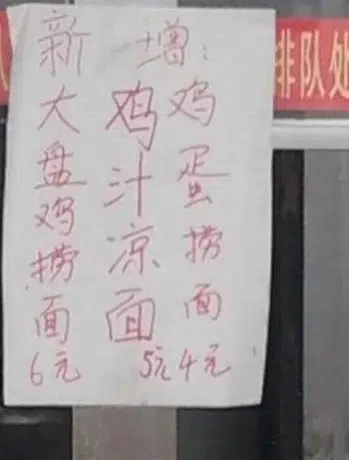 新增:
大盘鸡捞面
6元
鸡汁凉面
5元
鸡蛋捞面
4元
排队处